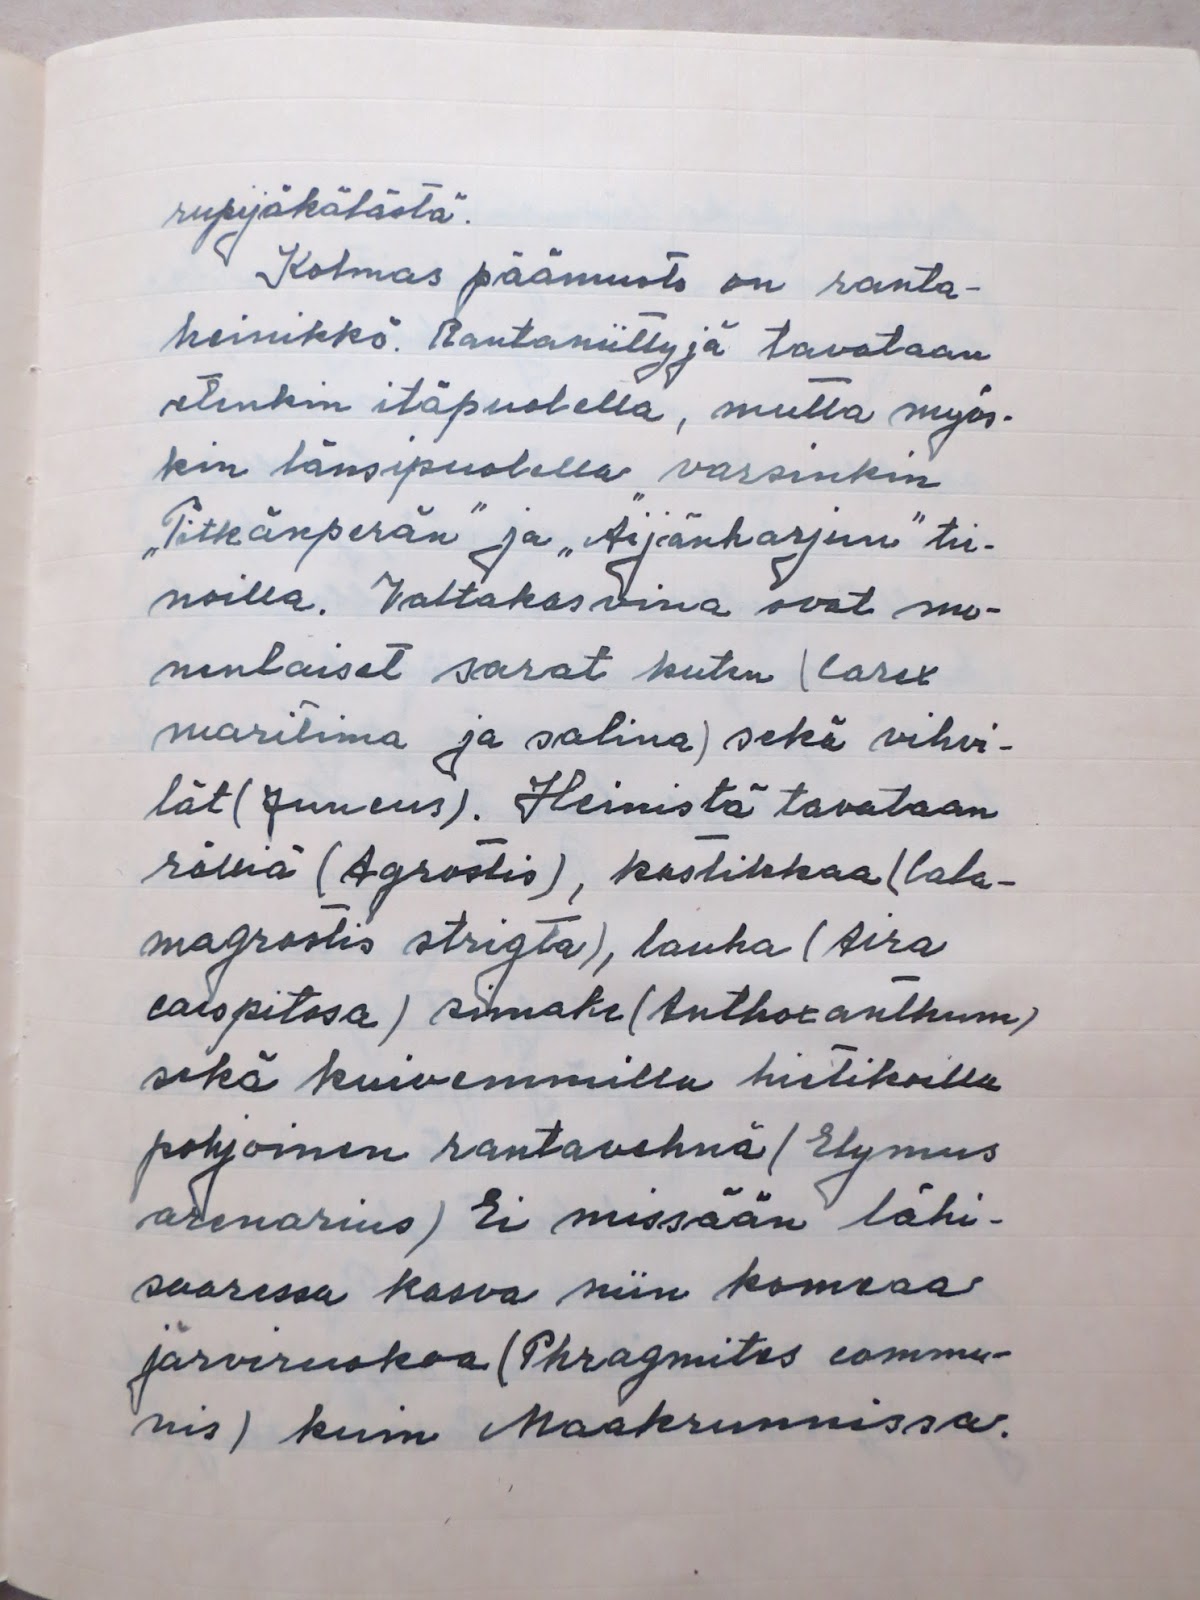 rupijäkälästä.
Kolmas päämuoto on ranta-
heinikkö. Rantaniittyjä tavataan
etenkin itäpuolella, mutta myös-
kin länsipuolella varsinkin
„Pitkänperän" ja „Äijänharjun" tie-
noilla. Valtakasvina ovat mo-
nenlaiset sarat kuten (Carex
maritima ja salina) sekä vihvi-
lät (Juncus). Heinistä tavataan
rölliä (Agrostis), kastikkaa (Cala-
magrostis strigta), lauha (Aira
caespitosa) simake (Anthoxanthum)
sekä kuivemmilla hietikoilla
pohjoinen rantavehnä (Elymus
arenarius) Ei missään lähi-
saaressa kasva niin komeaa
järviruokoa (Phragmites commu-
nis) kuin Maakrunnissa.